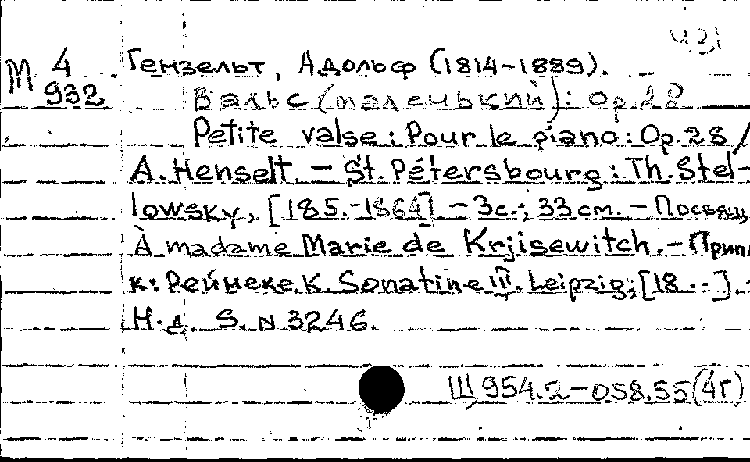 431
М 4 Гензельт, Адольф (1814-1889).
932 Вальс (маленький): Op.28
Petite valse: Pour le piano: Op.28 /
A. Henselt. — St. Pétersbourg: Th. Stel-
lowsky, [185.-1864] - 3с.; 33см. - Посвящ
À madame Marie de Krjisewitch. - Прип
к: Рейнеке, К. Sonatine III. Leipzig; [18..].
Н.д. S. N 3246.
Щ 954.2-058.55(4г)